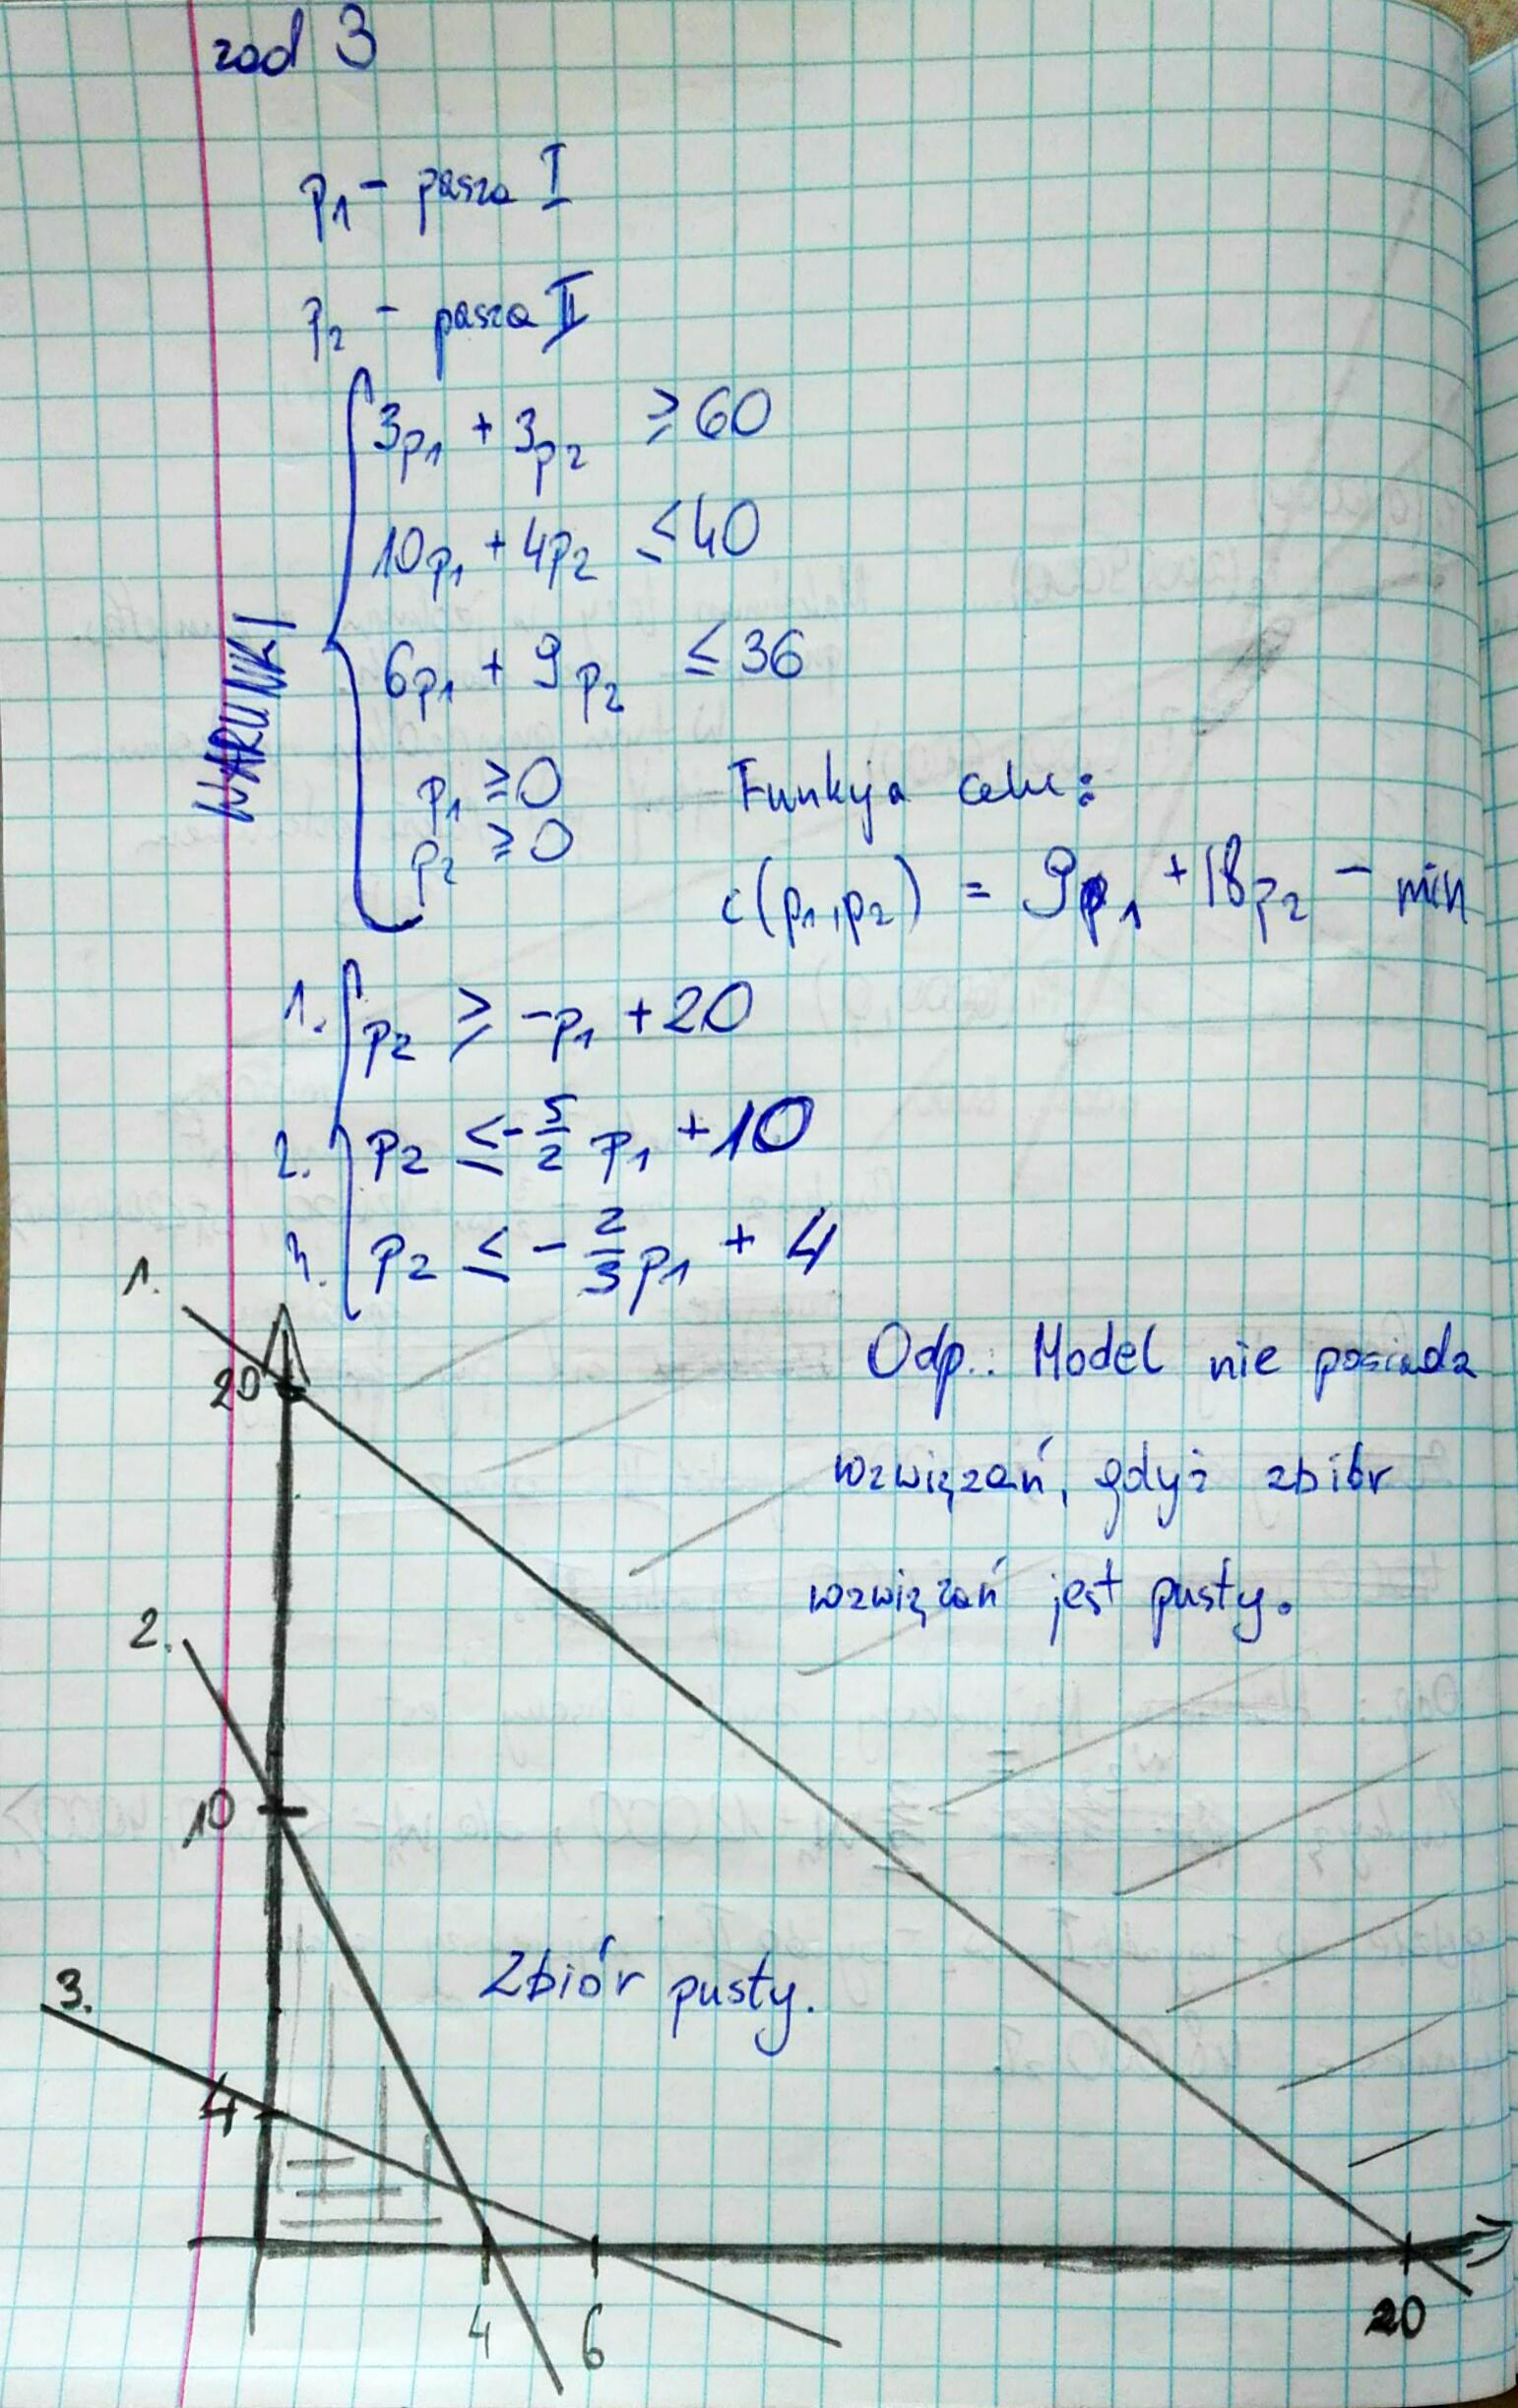 zad 3
p₁ - pasza I
p₂ - pasza II
WARUNKI
3p₁ + 3p₂ ≥ 60
10p₁ + 4p₂ ≤ 40
6p₁ + 9p₂ ≤ 36
p₁ ≥ 0
p₂ ≥ 0
Funkcja celu:
c(p₁,p₂) = 9p₁ + 18p₂ - min
1. p₂ ≥ -p₁ + 20
2. p₂ ≤ -5/2 p₁ + 10
3. p₂ ≤ -2/3 p₁ + 4
1.
20
Odp.: Model nie posiada
rozwiązań, gdyż zbiór
rozwiązań jest pusty.
2.
10
Zbiór pusty.
3.
4
4 6 20